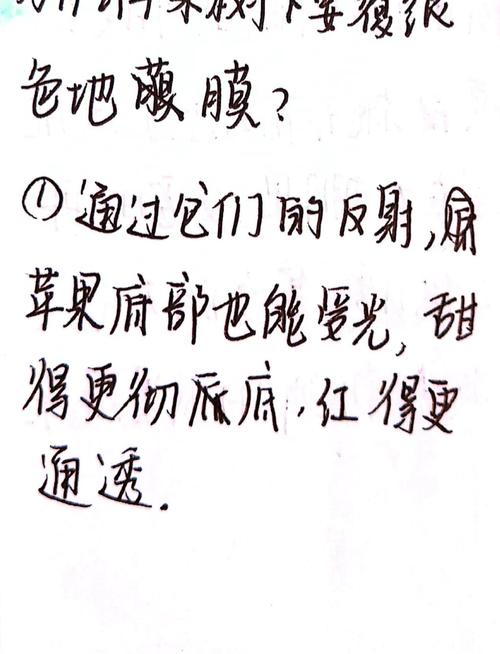 为什么苹果树下要覆银
色地膜膜？
①通过它们的反射，
苹果底部也能受光，甜
得更彻底底，红得更
通透．